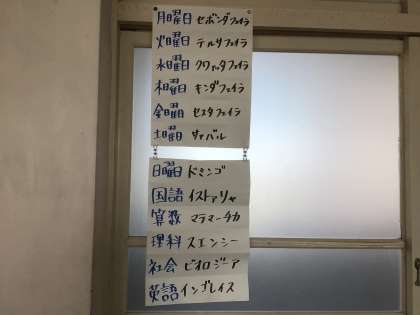 月曜日 セボンダフェイラ
火曜日 テルサフェイラ
水曜日 クワッタフェイラ
木曜日 キンダフェイラ
金曜日 セスタフェイラ
土曜日 サバル
日曜日 ドミンゴ
国語 イストァリャ
算数 マテマーチカ
理科 スエンシー
社会 ビオロジーア
英語 イングレイス